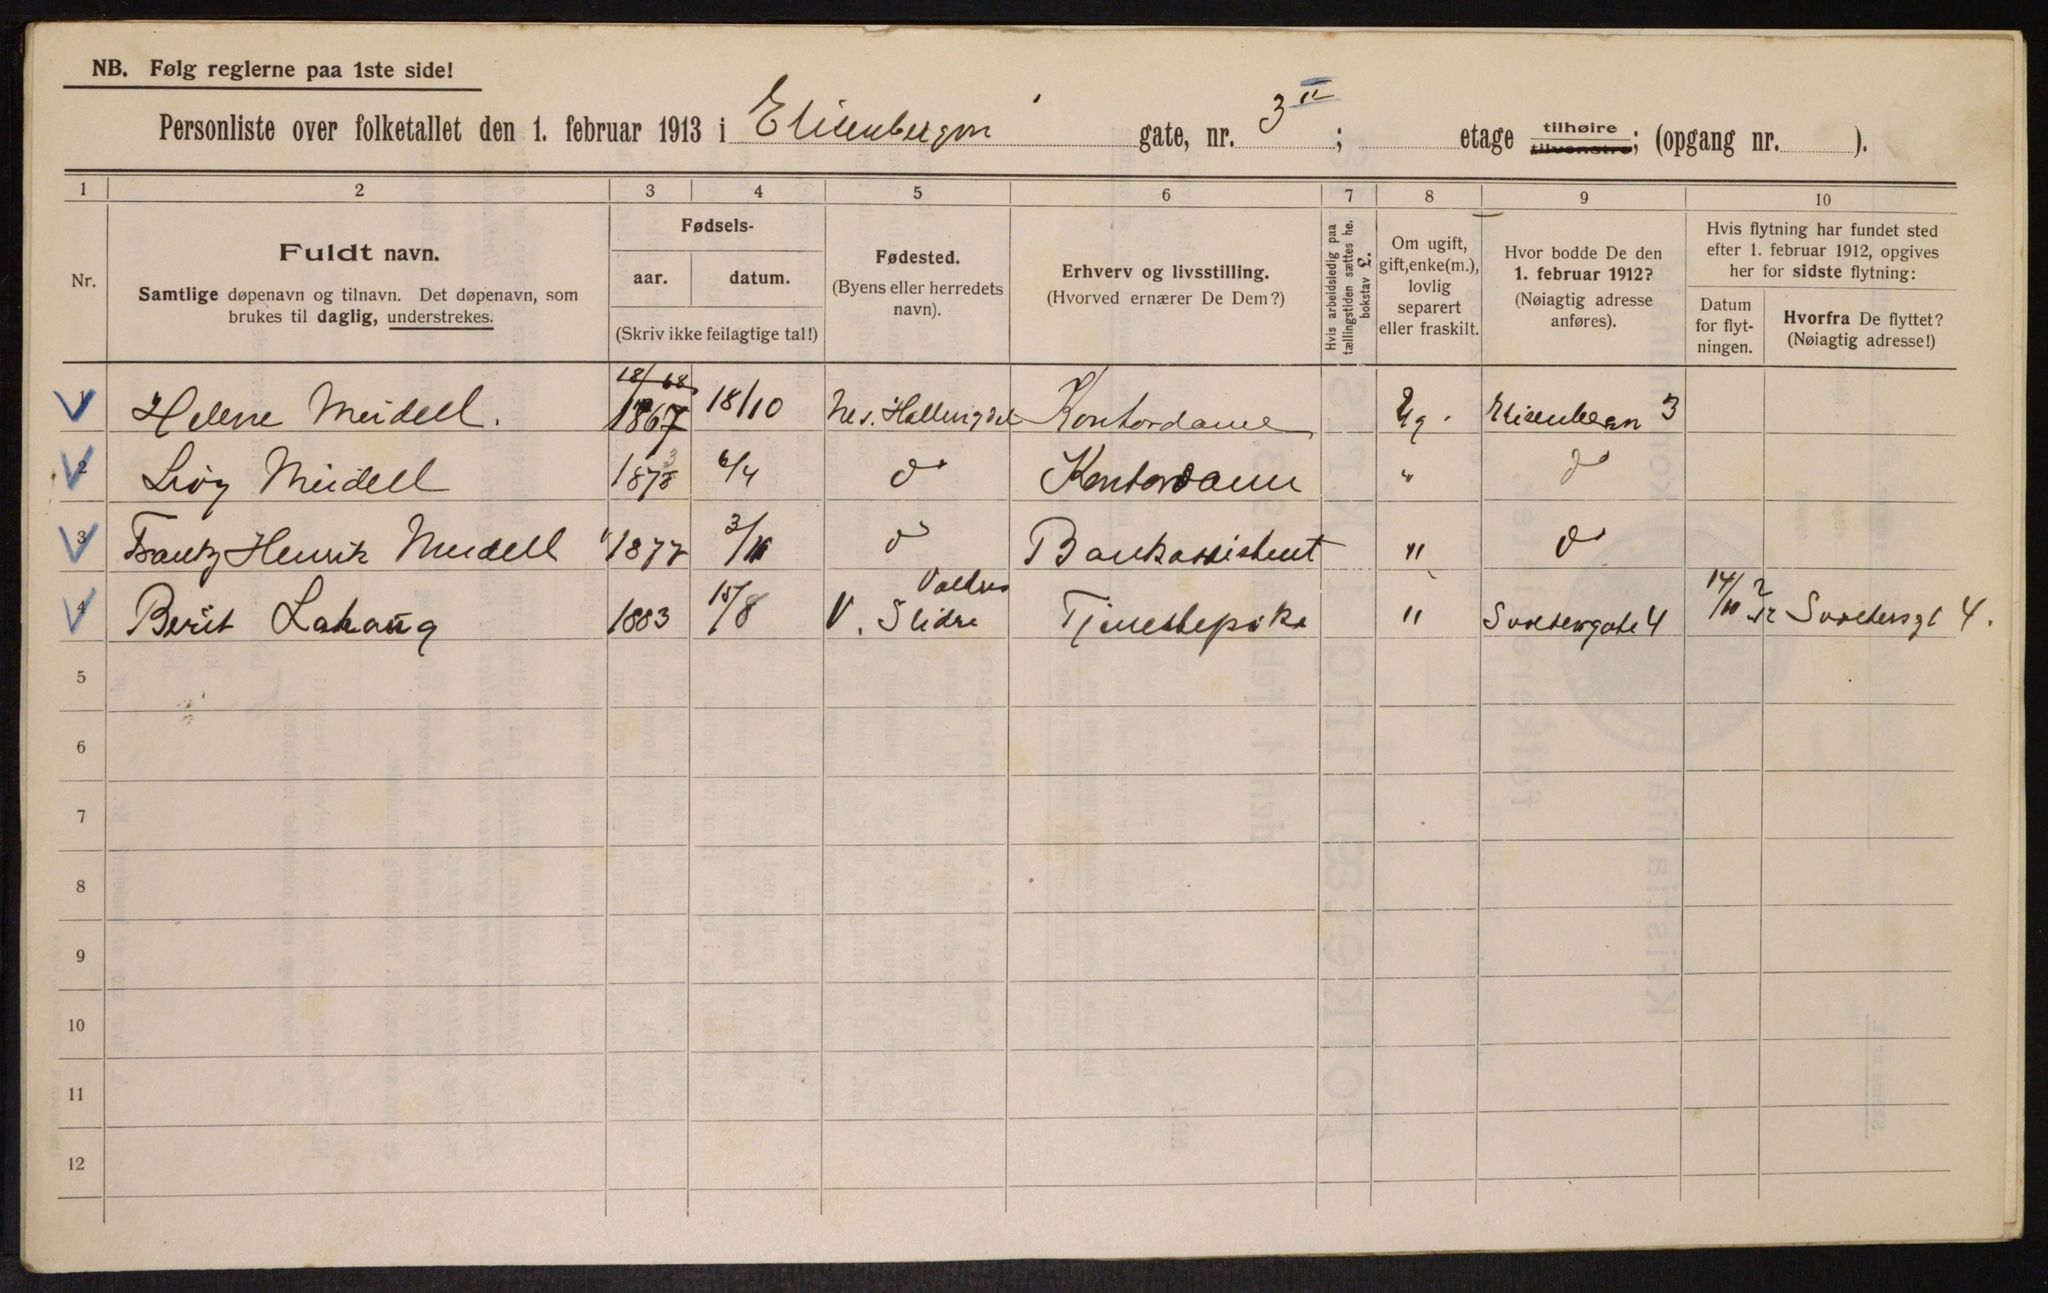 NB. Følg reglerne paa 1ste side!
Personliste over folketallet den 1. februar 1913 i Elisenbergvn gate, nr. 3 II ; etage tilhøire tilvenstre; (opgang nr. ).
1 2 3 4 5 6 7 8 9 10
Nr.
Fuldt navn.
Samtlige døpenavn og tilnavn. Det døpenavn, som
brukes til daglig, understrekes.
Fødsels-
aar. datum.
(Skriv ikke feilagtige tal!)
Fødested.
(Byens eller herredets
navn).
Erhverv og livsstilling.
(Hvorved ernærer De Dem?)
Hvis arbeidsledig paa
tællingstiden sættes he.
bokstav L.
Om ugift,
gift, enke(m.),
lovlig
separert
eller fraskilt.
Hvor bodde De den
1. februar 1912?
(Nøiagtig adresse
anføres).
Hvis flytning har fundet sted
efter 1. februar 1912, opgives
her for sidste flytning:
Datum
for flyt-
ningen.
Hvorfra De flyttet?
(Nøiagtig adresse!)
1 Helene Meidell. 18/68 1867 18/10 Nes. Hallingdal Kontordame Ug. Elisenbergvn 3
2 Meidell 1873 6/4 do Kontordame " do
3 Frantz Henrik Meidell 1877 3/11 do Bankassistent " do
4 Berit 1883 15/8 V. Slidre Valdres Tjenestepike " Sorterigate 4 14/10 12 4.
5
6
7
8
9
10
11
12